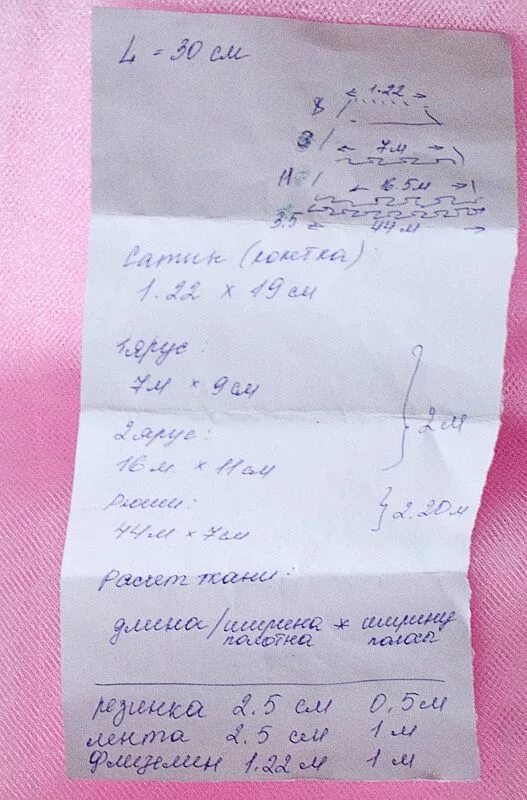 L = 30 см
1.22
8
8
7м
11
16.5м
3.5
44м
Сатин (кокетка):
1.22 × 19 см
1 ярус:
7м × 9см
2м
2 ярус:
16м × 11см
Рюши:
44м × 7см
2.20м
Расчет ткани:
длина / ширина полотна * ширину полосы
резинка 2.5 см 0,5м
лента 2.5 см 1 м
Флизелин 1.22 м 1 м